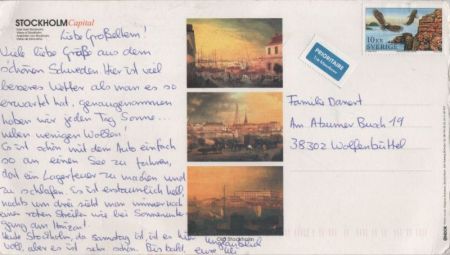 STOCKHOLM Capital
Liebe Großeltern!
Viele liebe Grüße aus dem
schönen Schweden. Hier ist viel
besseres Wetter als man es so
erwartet hat, genaugenommen
haben wir jeden Tag Sonne...
neben wenigen Wolken!
Es ist schön mit dem Auto einfach
so an einen See zu fahren,
dort ein Lagerfeuer zu machen und
zu schlafen. Es ist erstaunlich hell,
nachts um drei sieht man immer noch
einen roten Streifen wie bei Sonnenunter
gang am Horizont.
Heute Stockholm, da samstag ist, ist es hier unglaublich
voll, aber es ist sehr schön. Bis bald, eure
Old Stockholm
PRIORITAIRE
10 KR
SVERIGE
Familie Danert
Am Atzumer Busch 19
38302 Wolfenbüttel